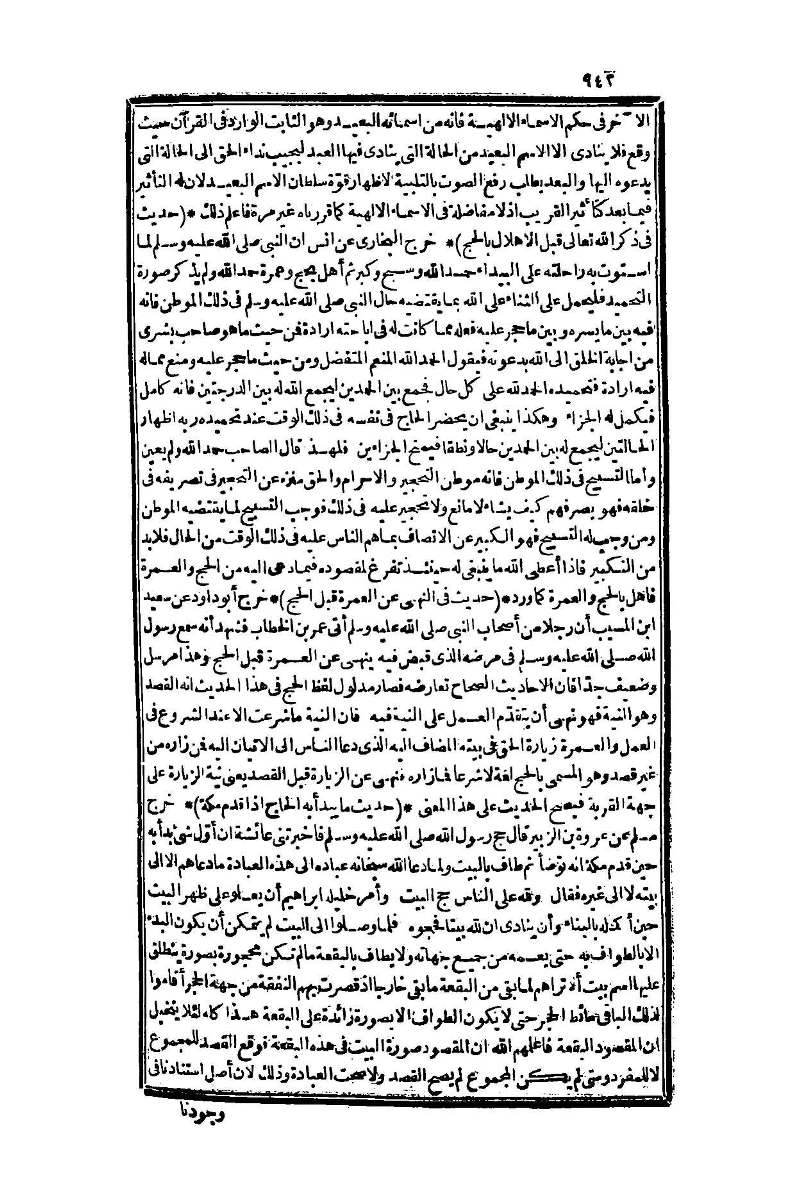 ٩٤٣
الا خر فى حكم الاسماء الالهية فانه من اسمائه البعيد وهو الثابت الوارد فى القرآن حيث
وقع فلا ينادى الا الاسم البعيد من الحالة التى ينادى فيها العبد ليجيب نداء الحق الى الحالة التى
يدعوه اليها والبعد يطلب رفع الصوت بالتلبية لاظهار قوة سلطان الاسم البعيد لان له التأثير
فيما بعد كتأثير القريب اذ لا مفاضلة فى الاسماء الالهية كما قررناه غير مرة فاعلم ذلك *(حديث
فى ذكر الله تعالى قبل الاهلال بالحج)* خرج البخارى عن انس ان النبى صلى الله عليه وسلم لما
استوت به راحلته على البيداء حمد الله وسبح وكبر ثم أهل بحج وعمرة حمد الله ولم يذكر صورة
التحميد فليحمل على الثناء على الله بما يقتضيه حال النبى صلى الله عليه وسلم فى ذلك الموطن فانه
فيه بين ما يسره وبين ما حجر عليه فعله مما كانت له فى اباحته ارادة فمن حيث ما هو صاحب بشرى
من اجابة الخلق الى الله بدعوته فيقول الحمد لله المنعم المتفضل ومن حيث ما حجر عليه ومنع مما له
فيه ارادة فتحميده الحمد لله على كل حال فجمع بين الحمدين ليجمع الله له بين الدرجتين فانه كامل
فيكمل له الجزاء وهكذا ينبغى ان يحضر الحاج فى نفسه فى ذلك الوقت عند تحميده ربه اظهار
الحالتين ليجمع له بين الحمدين حالا ونطقا فيمنح الجزاءين فلهذا قال الصاحب حمد الله ولم يعين
وأما التسبيح فى ذلك الموطن فانه موطن التحجير والاحرام والحق منزه عن التحجير فى تصريفه فى
خلقه فهو يصرفهم كيف يشاء لا مانع ولا تحجير عليه فى ذلك فوجب التسبيح لما يقتضيه الموطن
ومن وجب له التسبيح فهو الكبير عن الاتصاف بما هم الناس عليه فى ذلك الوقت من الحال فلا بد
من التكبير فاذا أعطى الله ما ينبغى له حينئذ تفرغ لمقصوده فيما دعى اليه من الحج والعمرة
فاهل بالحج والعمرة كما ورد *(حديث فى النهى عن العمرة قبل الحج)* خرج أبو داود عن سعيد
ابن المسيب أن رجلا من أصحاب النبى صلى الله عليه وسلم أتى عمر بن الخطاب فشهد أنه سمع رسول
الله صلى الله عليه وسلم فى مرضه الذى قبض فيه ينهى عن العمرة قبل الحج وهذا مرسل
وضعيف جدا فان الاحاديث الصحاح تعارضه فصار مدلول لفظ الحج فى هذا الحديث انه القصد
وهو النية فهو نهى أن يتقدم العمل على النية فيه فان النية ما شرعت الا عند الشروع فى
العمل والعمرة زيارة الحق فى بيته المضاف اليه الذى دعا الناس الى الاتيان اليه فمن زاره من
غير قصد وهو المسمى بالحج لغة لا شرعا فما زاره فنهى عن الزيارة قبل القصد يعنى نية الزيارة على
جهة القربة فيصح الحديث على هذا المعنى *(حديث ما يبدأ به الحاج اذا قدم مكة)* خرج
مسلم عن عروة بن الزبير قال حج رسول الله صلى الله عليه وسلم فاخبرتنى عائشة ان أول شئ بدأ به
حين قدم مكة انه توضأ ثم طاف بالبيت ولما دعا الله سبحانه عباده الى هذه العبادة ما دعاهم الا الى
بيته لا الى غيره فقال ولله على الناس حج البيت وأمر خليله ابراهيم أن يعلو على ظهر البيت
حين أكمله بالبناء وأن ينادى ان لله بيتا فحجوه فلما وصلوا الى البيت لم يتمكن أن يكون البدء
الا بالطواف به حتى يعمه من جميع جهاته ولا يطاف بالبقعة ما لم تكن محجورة بصورة ينطلق
عليها اسم بيت ألا تراهم لما بقى من البقعة ما بقى خارجا اذ قصرت بهم النفقة من جهة الحجر أقاموا
لذلك الباقى حائط الحجر حتى لا يكون الطواف الا بصورة زائدة على البقعة هذا كله لئلا يتخيل
ان المقصود البقعة فاعلمهم الله ان المقصود صورة البيت فى هذه البقعة فوقع القصد للمجموع
لا للمفرد ومتى لم يكن المجموع لم يصح القصد ولا صحت العبادة وذلك لان أصل استنادنا فى
وجودنا